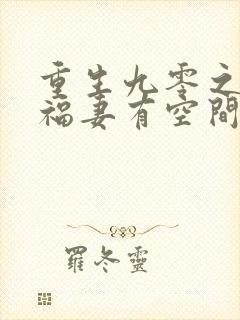 重生九零之
福妻有空間
羅冬靈